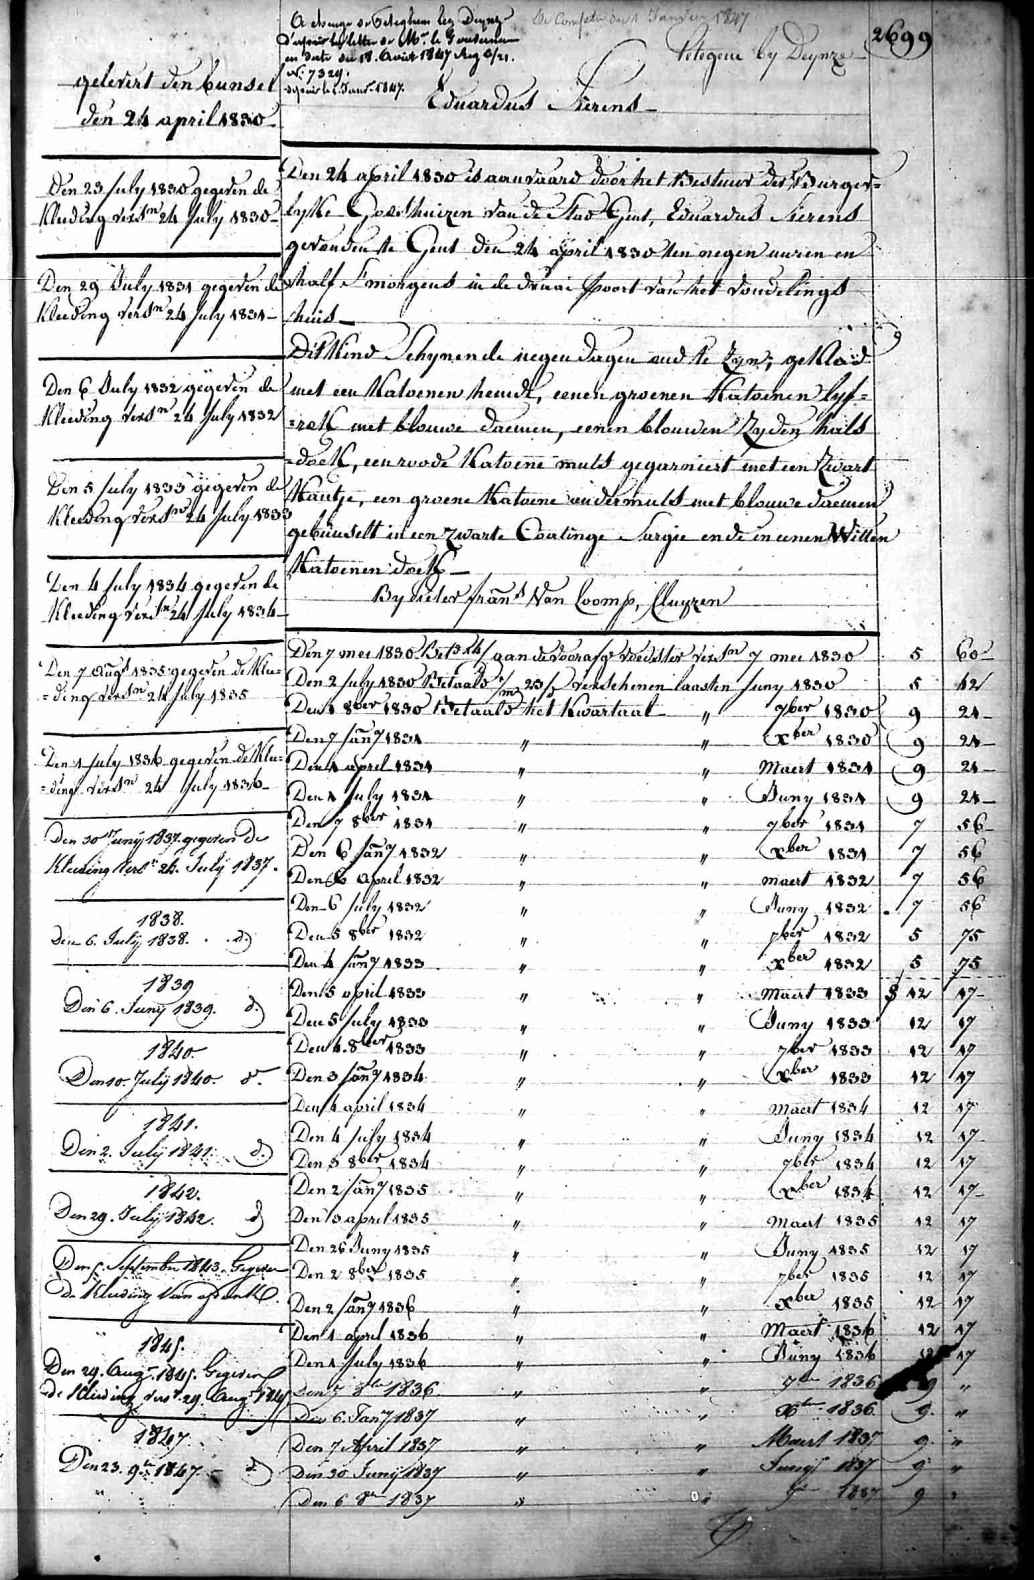 A charge de Peteghem lez Deynze
d'après la lettre de Mr. le Gouverneur
en date du 18 Août 1847
No. 7329.
depuis le 1 Janr. 1847.
1 Janvier 1847
Petegem by Deynze
2699
gelevert den bunsel
den 24 april 1830
Eduardus Sierens
Den 24 april 1830 is aanvaard door het Bestuur der Burger=
lyke Godshuizen van de Stad Gent, Eduardus Sierens
gevonden te Gent den 24 april 1830 ten negen uuren en
half S'morgens in de draai poort van het vondelings
huis
Dit Kind Schynende negen dagen oud te Zyn; gekleed
met een Katoenen hemde, eenen groenen Katoenen lyf=
=rok met blouwe daemen, eenen blouwen Zyden hals
=doek, een roode Katoene muts gegarniert met een Zwart
Kantje, een groene Katoene ondermuts met blouwe daemen
gebunselt in een Zwarte Coatinge Sargie ende in eenen Witten
Katoenen doek
By Pieter frans Van Loomp, Cluyzen
Den 23 July 1830 gegeven de
Kleeding versn 24 July 1830
Den 29 July 1831 gegeven de
Kleeding versn 24 July 1831
Den 6 July 1832 gegeven de
Kleeding versn 24 July 1832
Den 5 July 1833 gegeven de
Kleeding versn 24 July 1833
Den 4 July 1834 gegeven de
Kleeding versn 24 July 1834
Den 7 Augt 1835 gegeven de Klee=
=ding versn 24 July 1835
Den 1 July 1836 gegeven de Klee=
=ding versn 24 July 1836
Den 30 Juny 1837 gegeven de
Kleeding vers 24 July 1837.
1838.
Den 6. July 1838. d.
1839
Den 6. Juny 1839. d.
1840
Den 10. July 1840. do.
1841.
Den 2. July 1841. d.
1842.
Den 29. July 1842. d
Den 5 September 1843. Gegeven
de Kleeding
1845.
Den 29. Augt 1845. Gegeven
de Kleeding verst 29. Augt 1845
1847
Den 23. 9re 1847 d
Den 7 mei 1830 aan de voorafg voedster versn 7 mei 1830 5 60
Den 2 July 1830 Betaald verschenen laasten Juny 1830 5 12
Den 1 8ber 1830 Betaald het Kwartaal " 7ber 1830 9 24
Den 7 Jany 1831 " " Xber 1830 9 24
Den 1 april 1831 " " Maert 1831 9 24
Den 1 July 1831 " " Juny 1831 9 24
Den 7 8ber 1831 " " 7ber 1831 7 56
Den 6 Jany 1832 " " Xber 1831 7 56
Den 6 April 1832 " " maert 1832 7 56
Den 6 July 1832 " " Juny 1832 7 56
Den 5 8ber 1832 " " 7ber 1832 5 75
Den 4 Jany 1833 " " Xber 1832 5 75
Den 5 april 1833 " " Maert 1833 12 17
Den 5 July 1833 " " Juny 1833 12 17
Den 4 8ber 1833 " " 7ber 1833 12 17
Den 3 Jany 1834 " " Xber 1833 12 17
Den 4 april 1834 " " Maert 1834 12 17
Den 4 July 1834 " " Juny 1834 12 17
Den 3 8ber 1834 " " 7ber 1834 12 17
Den 2 Jany 1835 " " Xber 1834 12 17
Den 3 april 1835 " " Maert 1835 12 17
Den 26 Juny 1835 " " Juny 1835 12 17
Den 2 8ber 1835 " " 7ber 1835 12 17
Den 2 Jany 1836 " " Xber 1835 12 17
Den 1 april 1836 " " Maert 1836 12 17
Den 1 July 1836 " " Juny 1836 12 17
Den 7 8re 1836 " " 7re 1836 9 "
Den 6 Jany 1837 " " Xre 1836 9 "
Den 7 April 1837 " " Maert 1837 9 "
Den 30 Juny 1837 " " Juny 1837 9 "
Den 6 8re 1837 " " 7re 1837 9 "